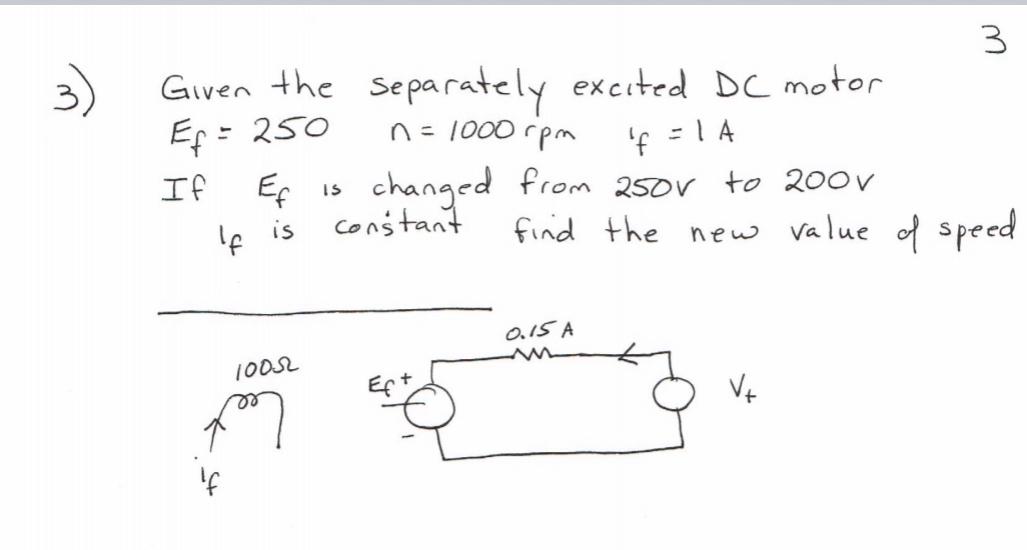 3
3) Given the separately excited DC motor
Ef = 250 n = 1000 rpm if = 1 A
If Ef is changed from 250V to 200V
If is constant find the new value of speed
0.15 A
100Ω
Ef +
Vt
-
if